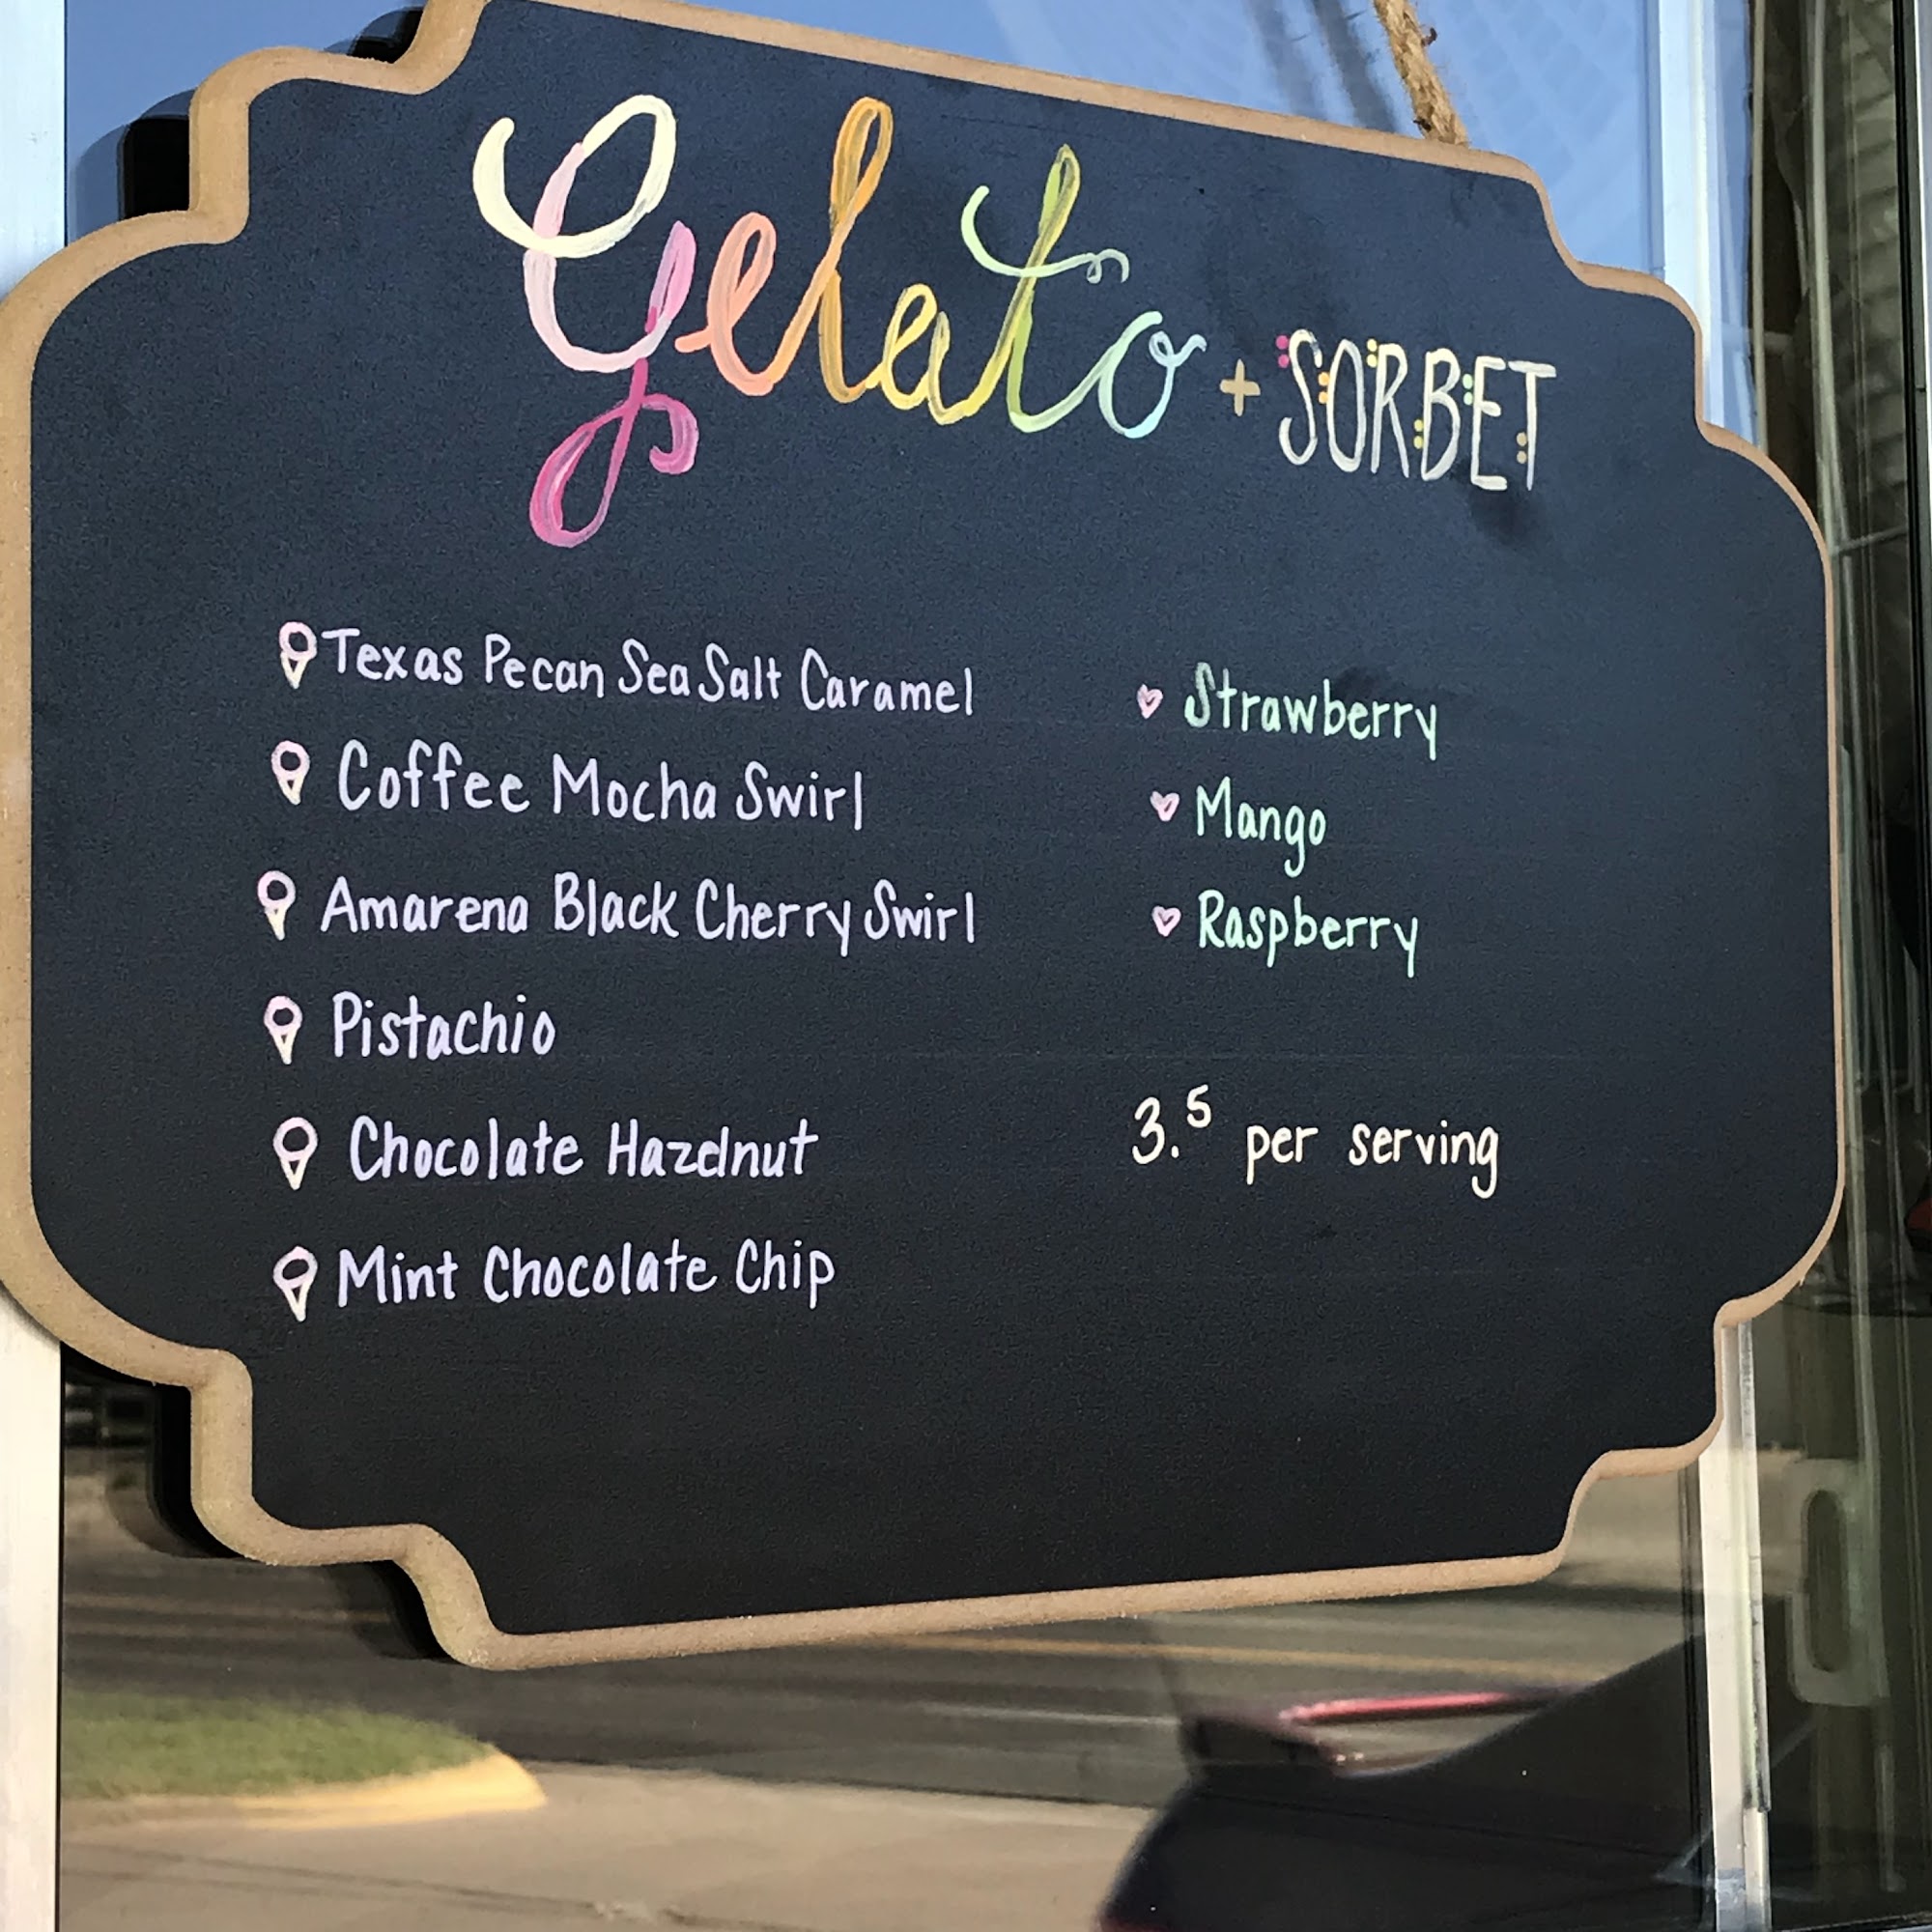 Gelato + SORBET
Texas Pecan Sea Salt Caramel
Coffee Mocha Swirl
Amarena Black Cherry Swirl
Pistachio
Chocolate Hazelnut
Mint Chocolate Chip
Strawberry
Mango
Raspberry
3.5 per serving